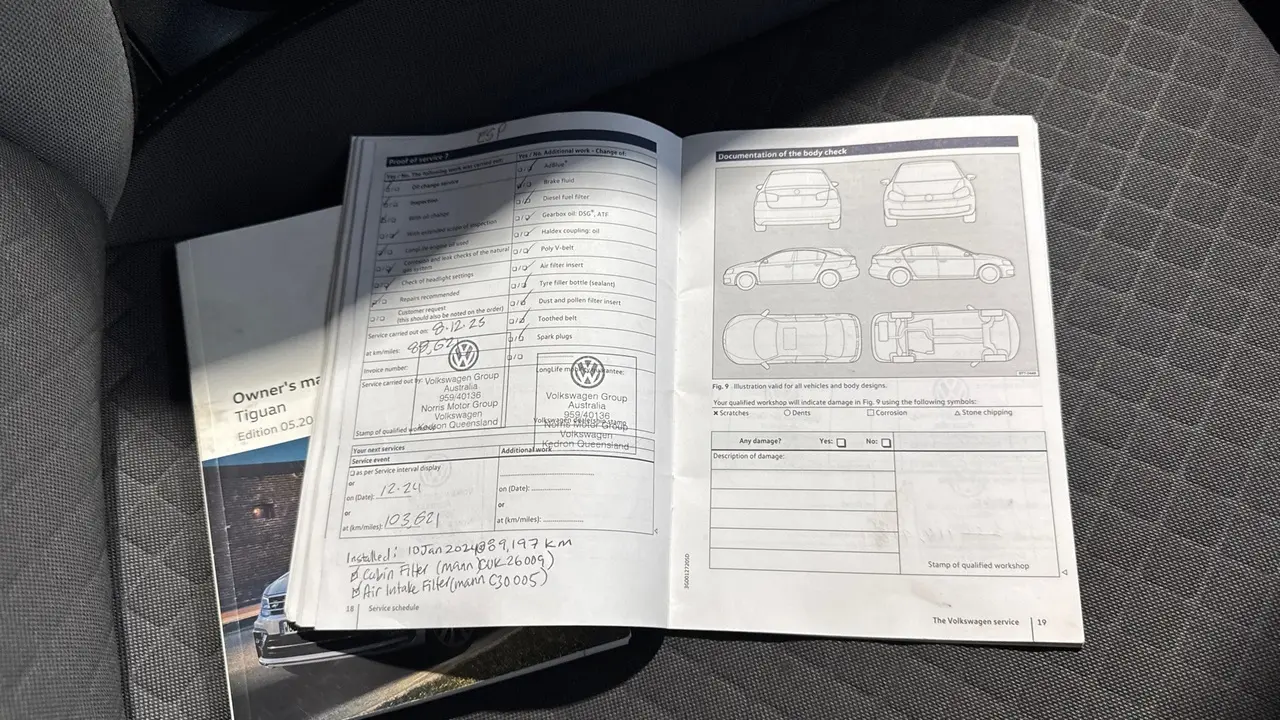 ESP
Proof of service 7
Yes / No, The following work was carried out:
Oil change service
Inspection
With oil change
With extended scope of inspection
LongLife engine oil used
Corrosion and leak checks of the natural
gas system
Check of headlight settings
Repairs recommended
Customer request
(this should also be noted on the order)
Service carried out on: 8.12.23
at km/miles:
Invoice number:
Service carried out by:
Volkswagen Group
Australia
959/40136
Norris Motor Group
Volkswagen
Kedron Queensland
Stamp of qualified workshop
Yes / No, Additional work - Change of:
AdBlue®
Brake fluid
Diesel fuel filter
Gearbox oil: DSG®, ATF
Haldex coupling: oil
Poly V-belt
Air filter insert
Tyre filler bottle (sealant)
Dust and pollen filter insert
Toothed belt
Spark plugs
LongLife mobility guarantee:
Volkswagen Group
Australia
959/40136
Norris Motor Group
Volkswagen
Kedron Queensland
Volkswagen dealership stamp
Your next services
Service event
as per Service interval display
or
on (Date): 12-24
or
at (km/miles): 103,621
Additional work
on (Date):
or
at (km/miles):
Installed: 10 Jan 2024 @ 89,197 km
Cabin Filter (mann CUK26009)
Air Intake Filter (mann C30005)
18 Service schedule
Documentation of the body check
Fig. 9 Illustration valid for all vehicles and body designs.
Your qualified workshop will indicate damage in Fig. 9 using the following symbols:
× Scratches ○ Dents □ Corrosion △ Stone chipping
Any damage? Yes: No:
Description of damage:
Stamp of qualified workshop
3G0012720SD
The Volkswagen service 19
Owner's ma
Tiguan
Edition 05.20